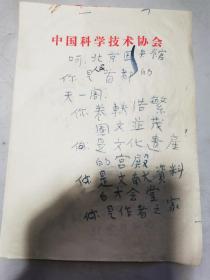 中国科学技术协会
啊，北京图书馆
你是首都的
人民
天一阁
你卷轶浩繁
图文並茂
你是文化遗产
的宫殿
你是文献资料
的大会堂
你是作者之家